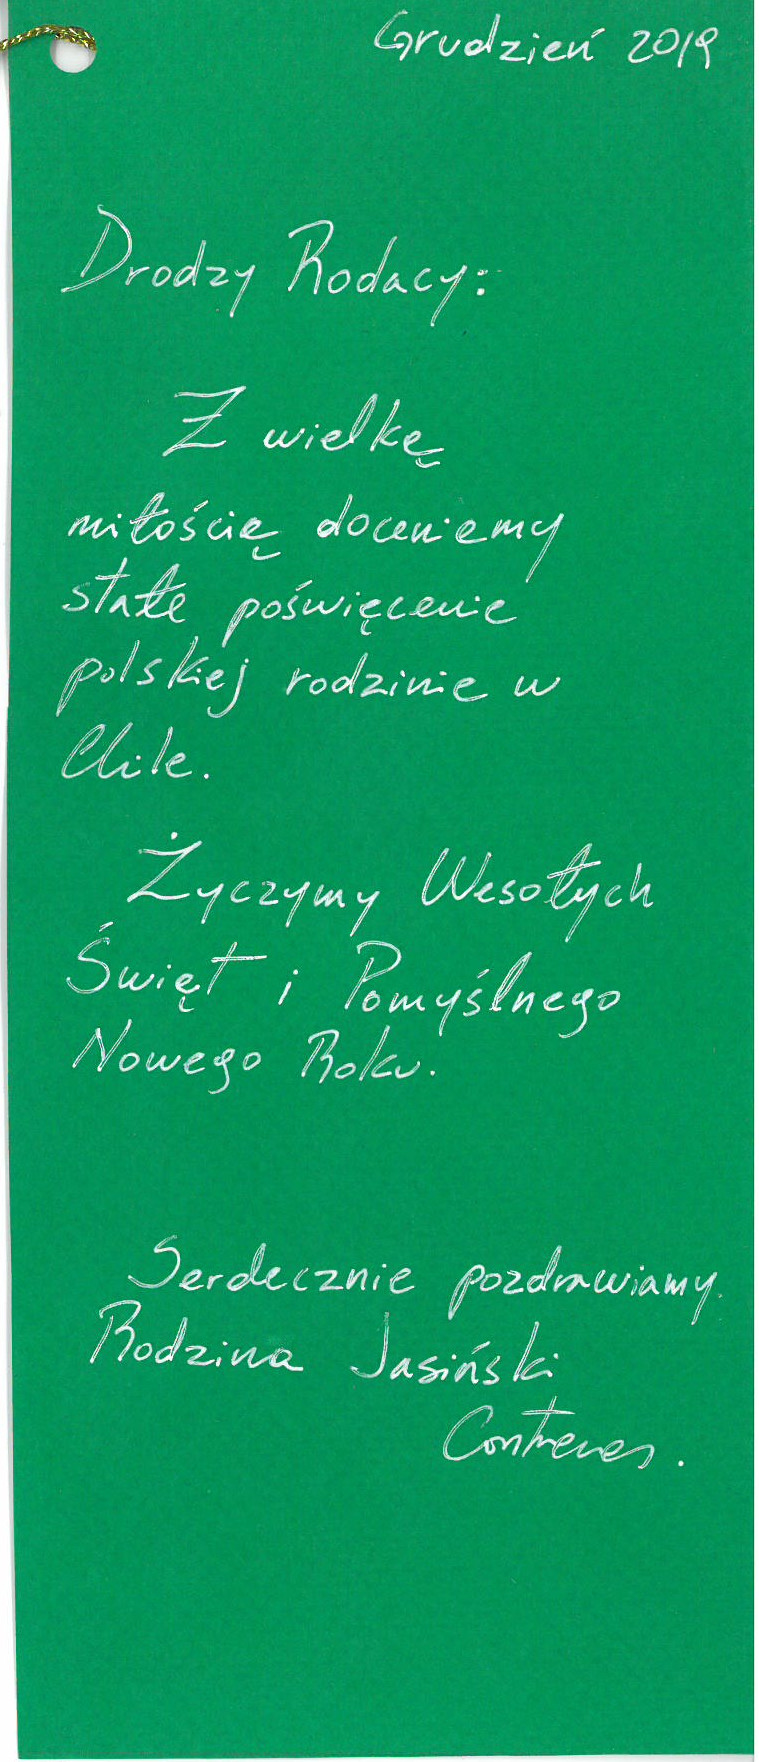 Grudzień 2019
Drodzy Rodacy:
Z wielkę
miłościę doceniemy
stałe poświęcenie
polskiej rodzinie w
Chile.
Życzymy Wesołych
Świąt i Pomyślnego
Nowego Roku.
Serdecznie pozdrawiamy.
Rodzina Jasiński
Contreras.